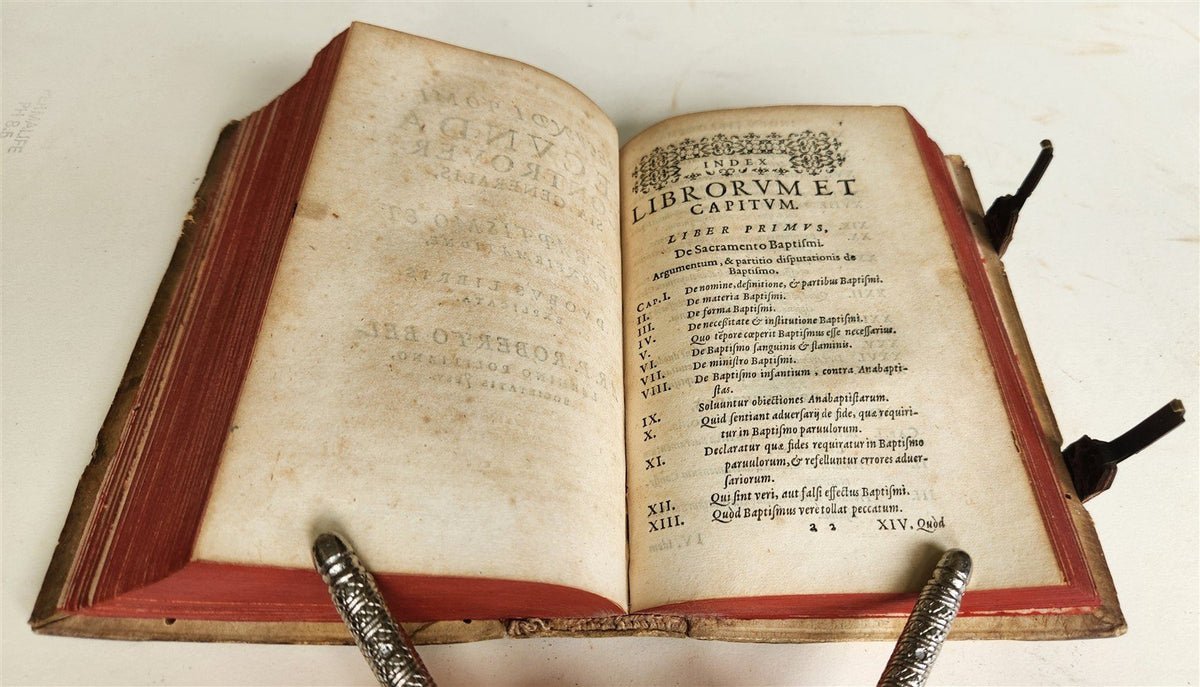 INDEX
LIBRORVM ET
CAPITVM.
LIBER PRIMVS,
De Sacramento Baptiſmi.
Argumentum, & partitio diſputationis de
Baptiſmo.
CAP. I. De nomine, definitione, & partibus Baptiſmi.
II. De materia Baptiſmi.
III. De forma Baptiſmi.
IV. De neceſsitate & inſtitutione Baptiſmi.
V. Quo tẽpore cœperit Baptiſmus eſſe neceſſarius.
VI. De Baptiſmo ſanguinis & flaminis.
VII. De miniſtro Baptiſmi.
VIII. De Baptiſmo infantium, contra Anabapti-
ſtas.
IX. Soluuntur obiectiones Anabaptiſtarum.
X. Quid ſentiant aduerſarij de fide, quæ requiri-
tur in Baptiſmo paruulorum.
XI. Declaratur quæ fides requiratur in Baptiſmo
paruulorum, & refelluntur errores aduer-
ſariorum.
XII. Qui ſint veri, aut falſi effectus Baptiſmi.
XIII. Quòd Baptiſmus vere tollat peccatum.
a 2 XIV. Quòd